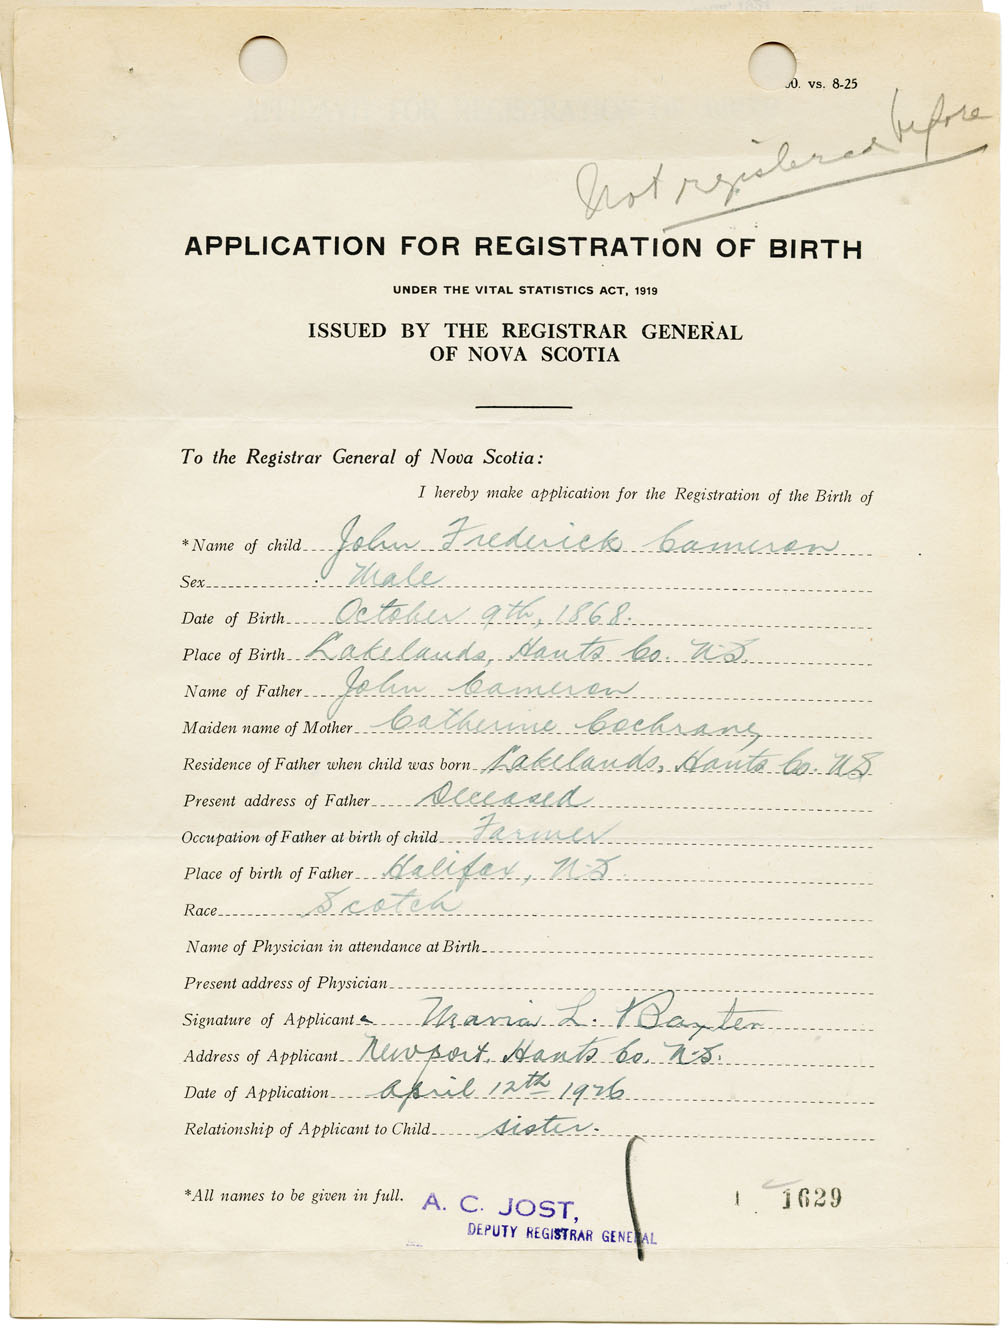 0. vs. 8-25
Not registered before
APPLICATION FOR REGISTRATION OF BIRTH
UNDER THE VITAL STATISTICS ACT, 1919
ISSUED BY THE REGISTRAR GENERAL
OF NOVA SCOTIA
To the Registrar General of Nova Scotia:
I hereby make application for the Registration of the Birth of
*Name of child John Frederick Cameron
Sex Male
Date of Birth October 9th, 1868.
Place of Birth Lakelands, Hants Co. N.S.
Name of Father John Cameron
Maiden name of Mother Catherine Cochrane,
Residence of Father when child was born Lakelands, Hants Co. N.S
Present address of Father Deceased
Occupation of Father at birth of child Farmer
Place of birth of Father Halifax, N.S.
Race Scotch
Name of Physician in attendance at Birth
Present address of Physician
Signature of Applicant Maria L. Baxter
Address of Applicant Newport, Hants Co. N.S.
Date of Application April 12th 1926
Relationship of Applicant to Child sister.
*All names to be given in full.
A. C. JOST,
DEPUTY REGISTRAR GENERAL
1629